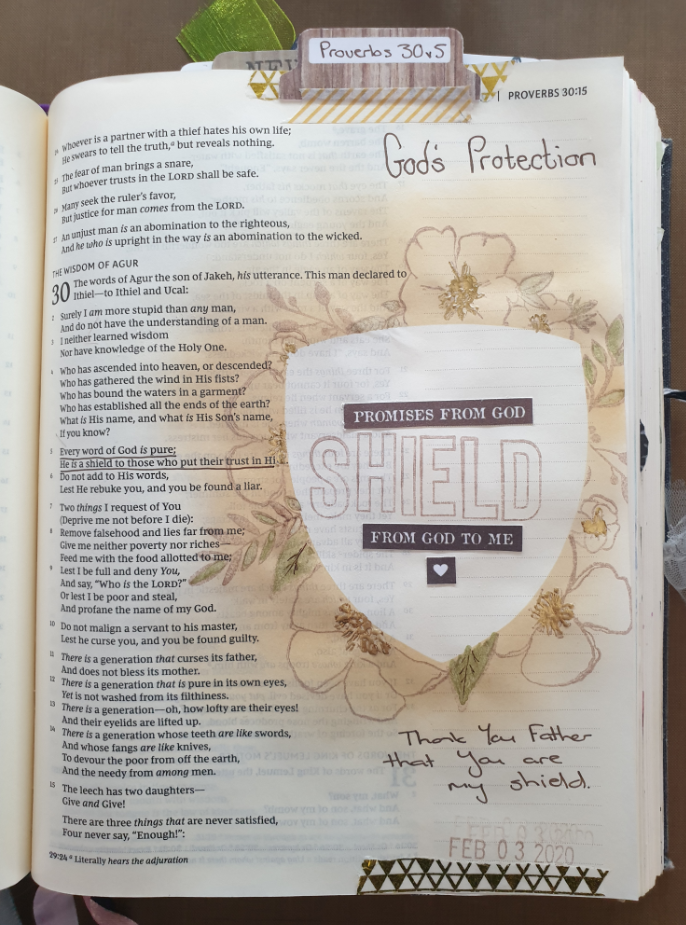 Proverbs 30v5
NEW
| PROVERBS 30:15
God's Protection
24 Whoever is a partner with a thief hates his own life;
He swears to tell the truth,a but reveals nothing.
25 The fear of man brings a snare,
But whoever trusts in the LORD shall be safe.
26 Many seek the ruler's favor,
But justice for man comes from the LORD.
27 An unjust man is an abomination to the righteous,
And he who is upright in the way is an abomination to the wicked.
THE WISDOM OF AGUR
30 The words of Agur the son of Jakeh, his utterance. This man declared to
Ithiel—to Ithiel and Ucal:
2 Surely I am more stupid than any man,
And do not have the understanding of a man.
3 I neither learned wisdom
Nor have knowledge of the Holy One.
4 Who has ascended into heaven, or descended?
Who has gathered the wind in His fists?
Who has bound the waters in a garment?
Who has established all the ends of the earth?
What is His name, and what is His Son's name,
If you know?
5 Every word of God is pure;
He is a shield to those who put their trust in Hi
6 Do not add to His words,
Lest He rebuke you, and you be found a liar.
7 Two things I request of You
(Deprive me not before I die):
8 Remove falsehood and lies far from me;
Give me neither poverty nor riches—
Feed me with the food allotted to me;
9 Lest I be full and deny You,
And say, "Who is the LORD?"
Or lest I be poor and steal,
And profane the name of my God.
10 Do not malign a servant to his master,
Lest he curse you, and you be found guilty.
11 There is a generation that curses its father,
And does not bless its mother.
12 There is a generation that is pure in its own eyes,
Yet is not washed from its filthiness.
13 There is a generation—oh, how lofty are their eyes!
And their eyelids are lifted up.
14 There is a generation whose teeth are like swords,
And whose fangs are like knives,
To devour the poor from off the earth,
And the needy from among men.
15 The leech has two daughters—
Give and Give!
There are three things that are never satisfied,
Four never say, "Enough!":
29:24 a Literally hears the adjuration
PROMISES FROM GOD
SHIELD
FROM GOD TO ME
Thank You Father
that You are
my shield.
FEB 03 2020